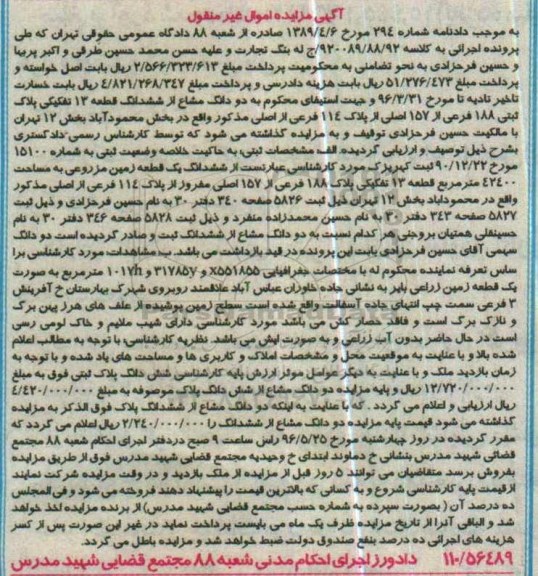 آگهی مزایده اموال غیر منقول
به موجب دادنامه شماره ۲۹۴ مورخ ۱۳۸۹/۴/۶ صادره از شعبه ۸۸ دادگاه عمومی حقوقی تهران که طی
پرونده اجرائی به کلاسه ۹۲۰۰۸۹/۸۸/۹۲/ج له بنگ تجارت و علیه حسن محمد حسین طرقی و اکبر پریبا
و حسین فرحزادی به نحو تضامنی به محکومیت پرداخت مبلغ ۲/۵۶۶/۳۲۳/۶۱۳ ریال بابت اصل خواسته و
پرداخت مبلغ ۵۱/۲۷۶/۴۷۳ ریال بابت هزینه دادرسی و پرداخت مبلغ ۴/۸۲۱/۲۶۸/۳۴۷ ریال بابت خسارت
تاخیر تادیه تا مورخ ۹۶/۲/۳۱ و جهت استیفای محکوم به دو دانگ مشاع از ششدانگ قطعه ۱۳ تفکیکی پلاک
ثبتی ۱۸۸ فرعی از ۱۵۷ اصلی از پلاک ۱۱۴ فرعی از اصلی مذکور واقع در بخش محمودآباد بخش ۱۲ تهران
با مالکیت حسین فرحزادی توقیف و به مزایده گذاشته می شود که توسط کارشناس رسمی دادگستری
بشرح ذیل توصیف و ارزیابی گردیده. الف: مشخصات ثبتی: به حاکیت خلاصه وضعیت ثبتی به شماره ۱۵۱۰۰
مورخ ۹۰/۱۲/۲۲ ثبت کهریزک مورد کارشناسی عبارتست از ششدانگ یک قطعه زمین مزروعی به مساحت
۴۲۴۰۰ مترمربع قطعه ۱۳ تفکیکی پلاک ۱۸۸ فرعی از ۱۵۷ اصلی مفروز از پلاک ۱۱۴ فرعی از اصلی مذکور
واقع در محموداباد بخش ۱۲ تهران ذیل ثبت ۵۸۲۶ صفحه ۳۴۰ دفتر ۳۰ به نام حسین فرحزادی و ذیل ثبت
۵۸۲۷ صفحه ۳۴۳ دفتر ۳۰ به نام حسین محمدزاده منفرد و ذیل ثبت ۵۸۲۸ صفحه ۳۴۶ دفتر ۳۰ به نام
حسینقلی همتیان بروجنی هر کدام نسبت به دو دانگ مشاع از ششدانگ ثبت و صادر گردیده است دو دانگ
سهمی آقای حسین فرحزادی بابت این پرونده در قید بازداشت می باشد. ب: مشاهدات: مورد کارشناسی برا
ساس تعرفه نماینده محکوم له با مختصات جغرافیایی X۵۵۱۸۵۵ و ۳۱۷۸۵۷ و ۱۰۱۷h مترمربع به صورت
یک قطعه زمین زراعی بایر به نشانی جاده خاوران عباس آباد علاقمند روبروی شهرک بهارستان خ آفرینش
۳ فرعی سمت چپ انتهای جاده آسفالت واقع شده است سطح زمین پوشیده از علف های هرز پین برگ
و نازک برگ است و فاقد حصار کش می باشد مورد کارشناسی دارای شیب ملایم و خاک لومی رسی
است در حال حاضر بدون آب زراعی و به صورت ایش می باشد. نظریه کارشناسی: با توجه به مطالب اعلام
شده بالا و با عنایت به موقعیت محل و مشخصات املاک و کاربری ها و مساحت های یاد شده و با توجه به
زمان بازدید ملک و با عنایت به دیگر عوامل موثر ارزش پایه کارشناسی شش دانگ پلاک ثبتی فوق به مبلغ
۱۲/۷۲۰/۰۰۰/۰۰۰ ریال و پایه مزایده دو دانگ مشاع از شش دانگ پلاک موصوفه به مبلغ ۴/۴۲۰/۰۰۰/۰۰۰
ریال ارزیابی و اعلام می گردد . که با عنایت به اینکه دو دانگ مشاع از ششدانگ پلاک فوق الذکر به مزایده
گذاشته می شود قیمت پایه مزایده دو دانگ مشاع از ششدانگ را ۲/۲۴۰/۰۰۰/۰۰۰ ریال اعلام می گردد که
مقرر گردیده در روز چهارشنبه مورخ ۹۶/۵/۲۵ راس ساعت ۹ صبح دردفتر اجرای احکام شعبه ۸۸ مجتمع
قضائی شهید مدرس بنشانی خ دماوند ابتدای خ وحیدیه مجتمع قضایی شهید مدرس فوق از طریق مزایده
بفروش برسد متقاضیان می توانند ۵ روز قبل از مزایده از ملک بازدید و در وقت مزایده شرکت نمایند
ازقیمت پایه کارشناسی شروع و به کسانی که بالاترین قیمت را پیشنهاد دهند فروخته می شود و فی المجلس
ده درصد آن ( بصورت سپرده به شماره حسب مجتمع قضایی شهید مدرس) از برنده مزایده اخذ خواهد
شد و الباقی آنرا از تاریخ مزایده ظرف یک ماه می بایست پرداخت نماید در غیر این صورت پس از کسر
هزینه های اجرائی ده درصد بنفع صندوق دولت ضبط خواهد شد و مزایده باطل می گردد.
۱۱۰/۵۶۴۸۹ دادورز اجرای احکام مدنی شعبه ۸۸ مجتمع قضایی شهید مدرس